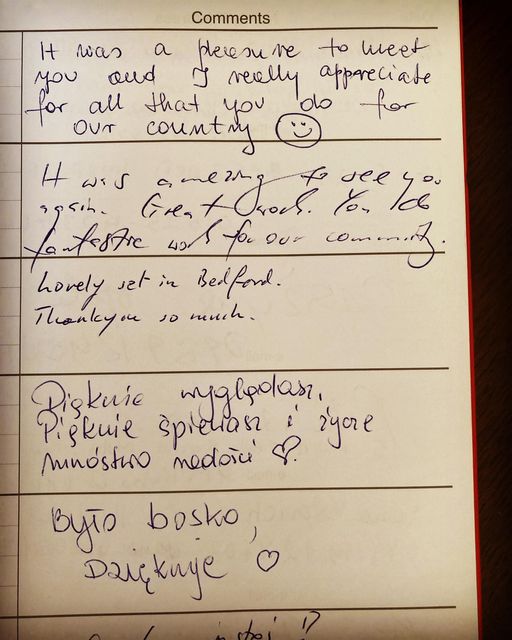 Comments
It was a pleasure to meet
you and I really appreciate
for all that you do for
our country
It was amazing to see you
again. Great work. You do
fantastic work for our community.
Lovely set in Bedford.
Thankyou so much.
Pięknie wyglądasz,
Pięknie śpiewasz i życzę
mnóstwo radości
Było bosko,
Dziękuję